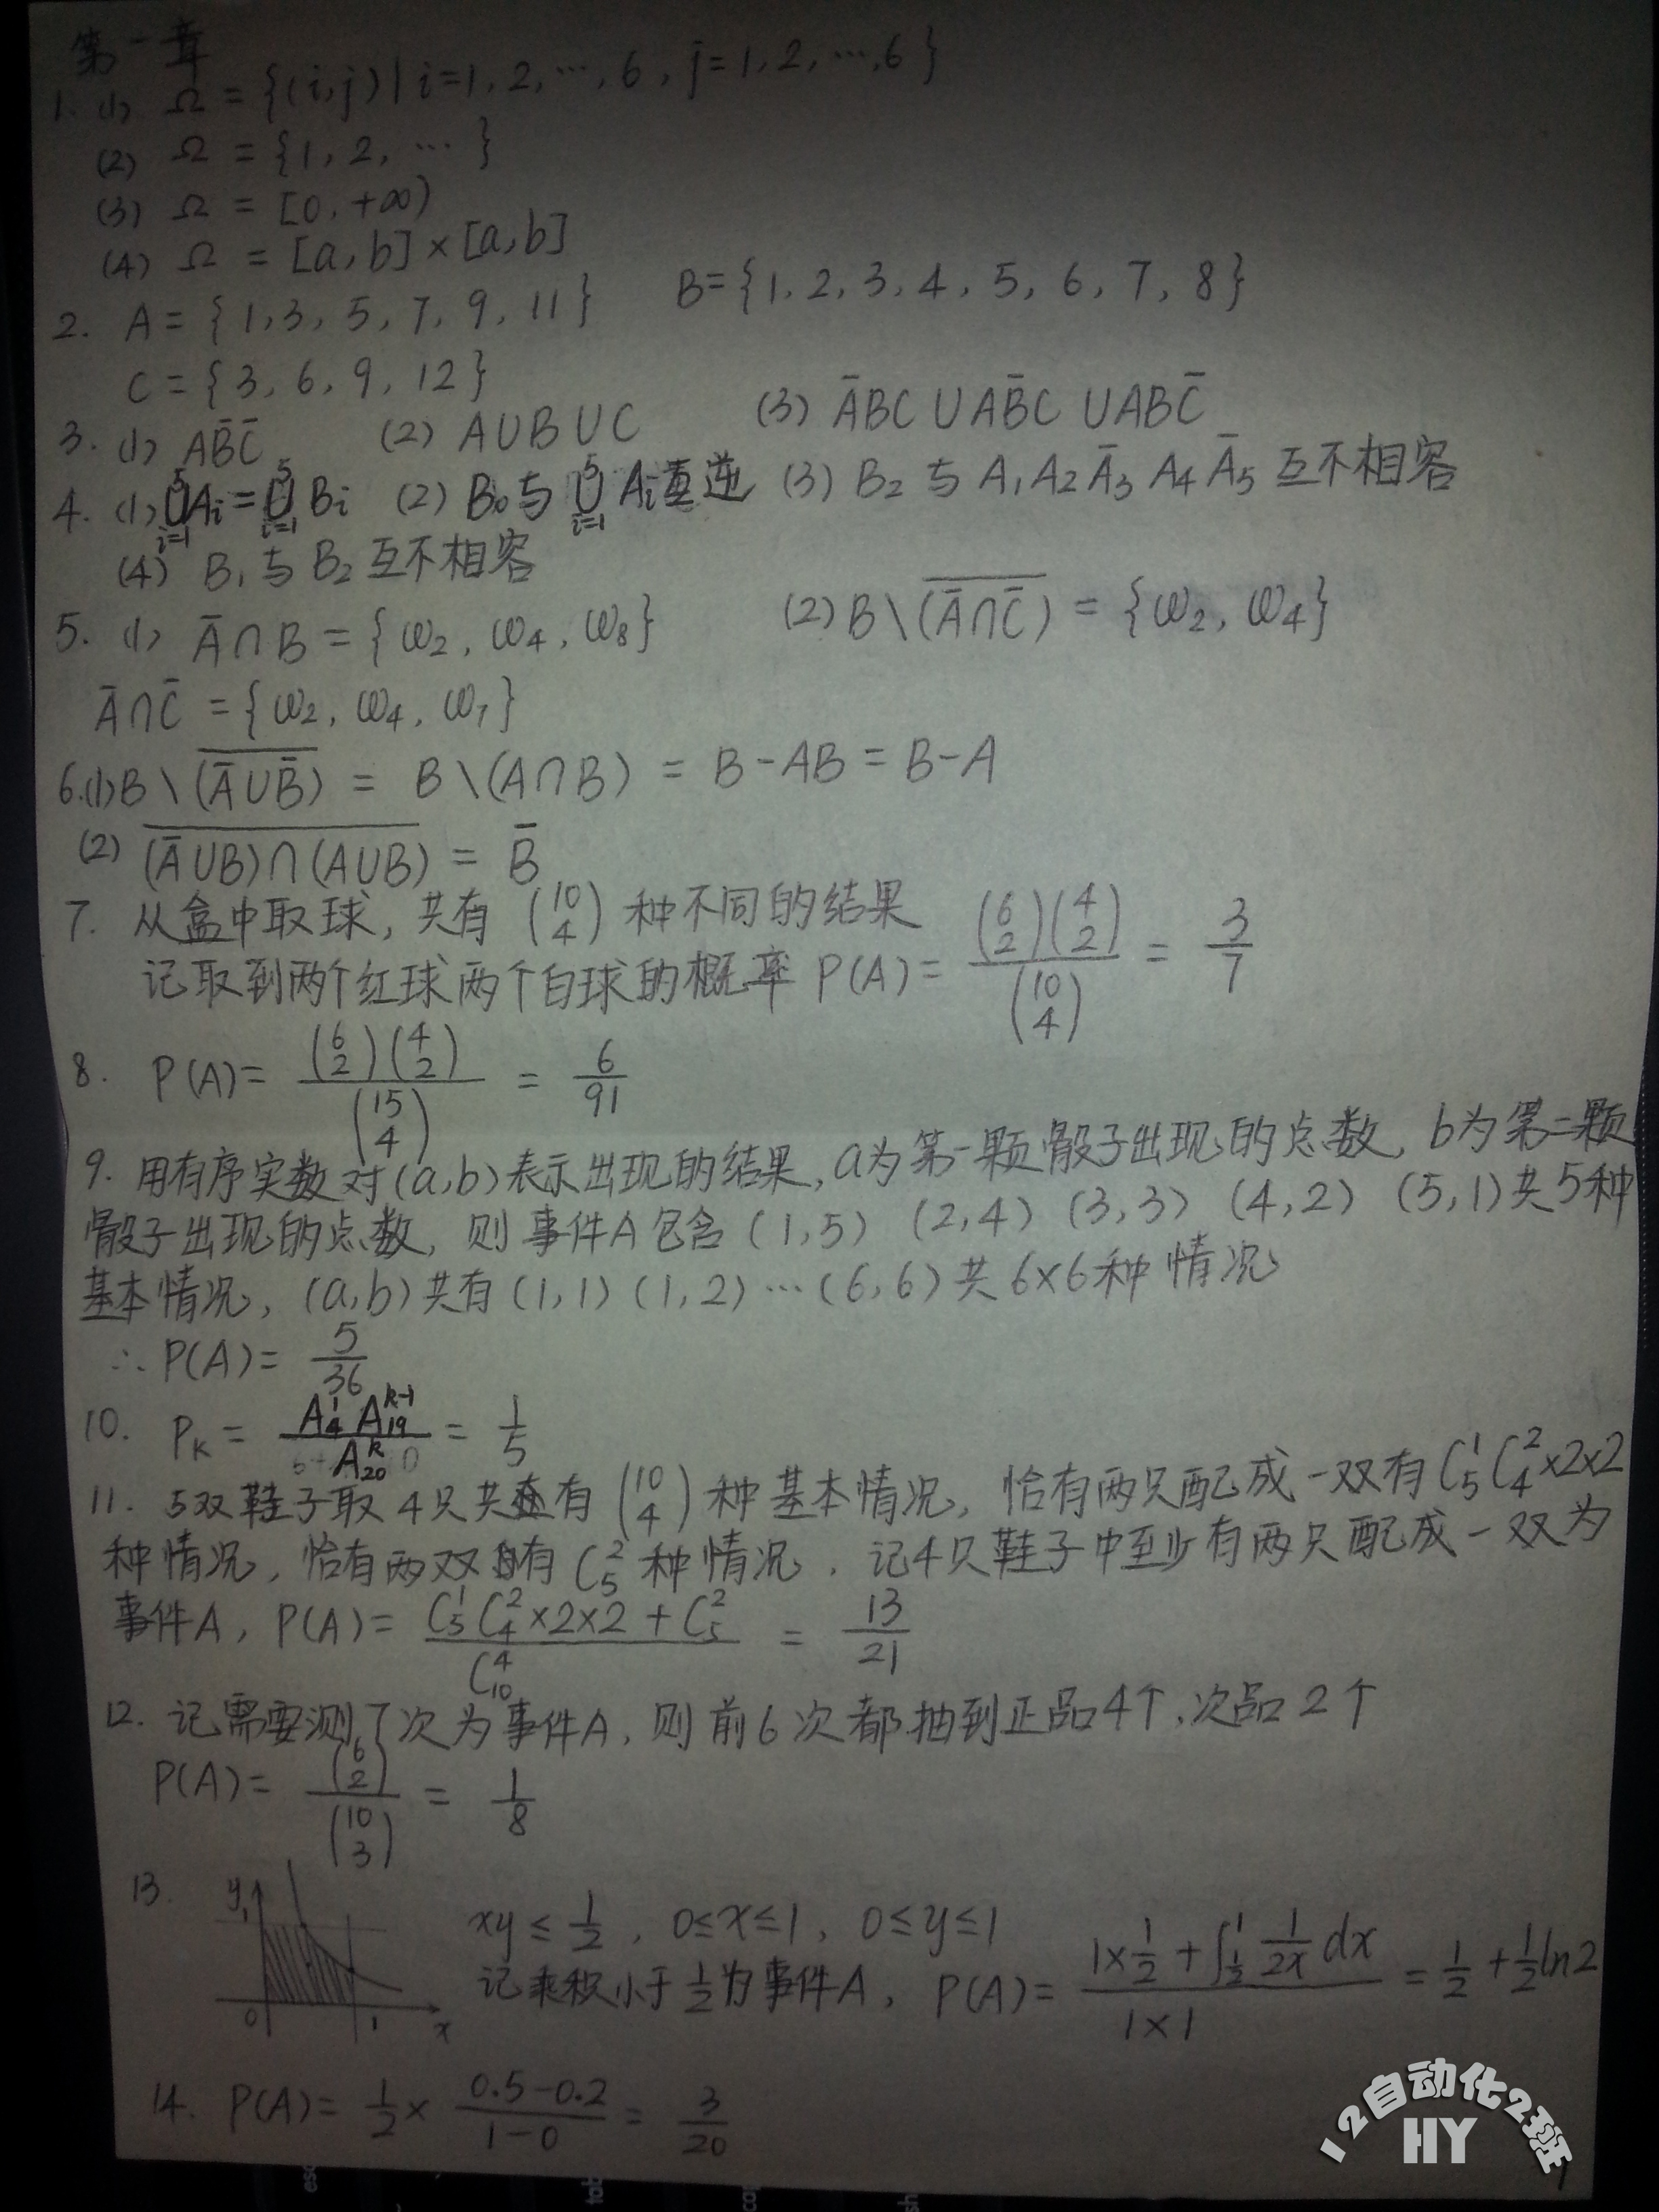 第一章
1. (1) Ω = {(i,j) | i=1,2,…,6, j=1,2,…,6}
(2) Ω = {1,2,…}
(3) Ω = [0,+∞)
(4) Ω = [a,b]×[a,b]
2. A = {1,3,5,7,9,11} B={1,2,3,4,5,6,7,8}
C = {3,6,9,12}
3. (1) AB̄C̄ (2) A∪B∪C (3) ĀBC∪AB̄C∪ABC̄
4. (1) ⋃_{i=1}^{5} Ai = ⋃_{i=1}^{5} Bi (2) B₀与 ⋃_{i=1}^{5} Ai 互逆 (3) B₂与A₁A₂Ā₃A₄Ā₅互不相容
(4) B₁与B₂互不相容
5. (1) Ā∩B = {ω₂, ω₄, ω₈} (2) B\\overline{(Ā∩C̄)} = {ω₂, ω₄}
Ā∩C̄ = {ω₂, ω₄, ω₇}
6.(1) B\\overline{(Ā∪B̄)} = B\(A∩B) = B-AB = B-A
(2) \overline{(Ā∪B)∩(A∪B)} = B̄
7. 从盒中取球, 共有 (10 4) 种不同的结果
记取到两个红球两个白球的概率 P(A) = (6 2)(4 2) / (10 4) = 3/7
8. P(A) = (6 2)(4 2) / (15 4) = 6/91
9. 用有序实数对(a,b)表示出现的结果, a为第一颗骰子出现的点数, b为第二颗
骰子出现的点数, 则事件A包含 (1,5) (2,4) (3,3) (4,2) (5,1)共5种
基本情况, (a,b)共有(1,1) (1,2) … (6,6)共6×6种情况
∴ P(A) = 5/36
10. P_K = A₄¹A₁₉^{k-1} / A₂₀^k = 1/5
11. 5双鞋子取4只共有 (10 4) 种基本情况, 恰有两只配成一双有C₅¹C₄²×2×2
种情况, 恰有两双有C₅²种情况. 记4只鞋子中至少有两只配成一双为
事件A, P(A) = (C₅¹C₄²×2×2 + C₅²) / C₁₀⁴ = 13/21
12. 记需要测7次为事件A, 则前6次都抽到正品4个, 次品2个
P(A) = (6 2) / (10 3) = 1/8
13. y 1 0 1 x xy ≤ 1/2, 0≤x≤1, 0≤y≤1
记乘积小于1/2为事件A, P(A) = (1×1/2 + ∫_{1/2}^{1} 1/(2x) dx) / (1×1) = 1/2 + 1/2 ln2
14. P(A) = 1/2 × (0.5-0.2)/(1-0) = 3/20
12自动化2班
HY
esc
tab
cap
sh